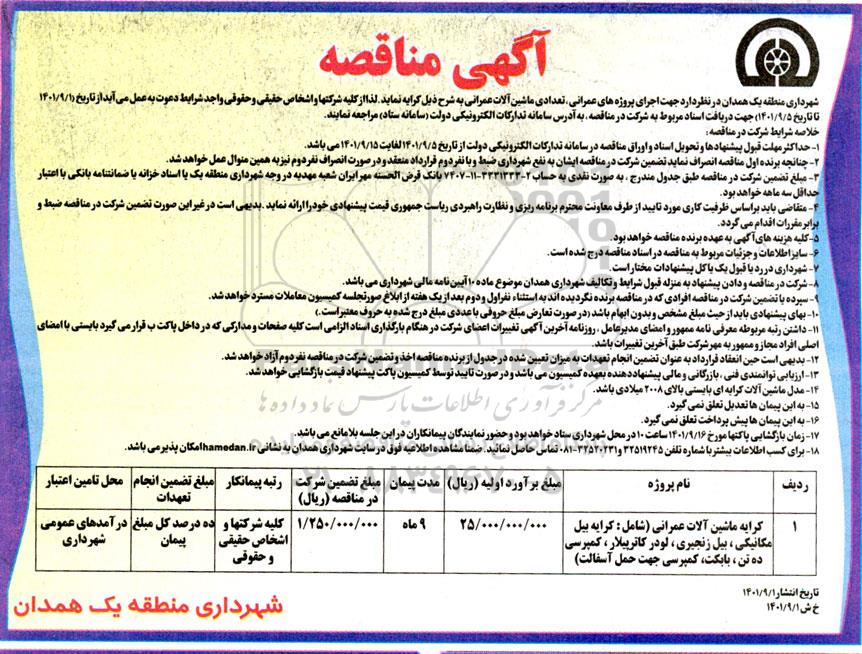 آگهی مناقصه
شهرداری منطقه یک همدان در نظر دارد جهت اجرای پروژه های عمرانی، تعدادی ماشین آلات عمرانی به شرح ذیل کرایه نماید. لذا از کلیه شرکتها و اشخاص حقیقی و حقوقی واجد شرایط دعوت به عمل می آید از تاریخ (۱۴۰۱/۹/۱
تا تاریخ ۱۴۰۱/۹/۵) جهت دریافت اسناد مربوط به شرکت در مناقصه، به آدرس سامانه تدارکات الکترونیکی دولت (سامانه ستاد) مراجعه نمایند.
خلاصه شرایط شرکت در مناقصه:
۱- حداکثر مهلت قبول پیشنهادها و تحویل اسناد و اوراق مناقصه در سامانه تدارکات الکترونیکی دولت از تاریخ ۱۴۰۱/۹/۵ لغایت ۱۴۰۱/۹/۱۵ می باشد.
۲- چنانچه برنده اول مناقصه انصراف نماید تضمین شرکت در مناقصه ایشان به نفع شهرداری ضبط و با نفر دوم قرارداد منعقد و در صورت انصراف نفر دوم نیز به همین منوال عمل خواهد شد.
۳- مبلغ تضمین شرکت در مناقصه طبق جدول مندرج، به صورت نقدی به حساب ۲-۳۳۲۱۳۳۳-۱۱-۷۴۰۷ بانک قرض الحسنه مهر ایران شعبه مهدیه در وجه شهرداری منطقه یک یا اسناد خزانه یا ضمانتنامه بانکی با اعتبار
حداقل سه ماهه خواهد بود.
۴- متقاضی باید بر اساس ظرفیت کاری مورد تایید از طرف معاونت محترم برنامه ریزی و نظارت راهبردی ریاست جمهوری قیمت پیشنهادی خود را ارائه نماید. بدیهی است در غیر این صورت تضمین شرکت در مناقصه ضبط و
برابر مقررات اقدام می گردد.
۵- کلیه هزینه های آگهی به عهده برنده مناقصه خواهد بود.
۶- سایر اطلاعات و جزئیات مربوط به مناقصه در اسناد مناقصه درج شده است.
۷- شهرداری در رد یا قبول یک یا کل پیشنهادات مختار است.
۸- شرکت در مناقصه و دادن پیشنهاد به منزله قبول شرایط و تکالیف شهرداری همدان موضوع ماده ۱۰ آیین نامه مالی شهرداری می باشد.
۹- سپرده یا تضمین شرکت در مناقصه افرادی که در مناقصه برنده نگردیده اند به استثناء نفر اول و دوم بعد از یک هفته از ابلاغ صورتجلسه کمیسیون معاملات مسترد خواهد شد.
۱۰- بهای پیشنهادی باید از حیث مبلغ مشخص و بدون ابهام باشد (در صورت تعارض مبلغ حروفی با عددی مبلغ درج شده به حروف معتبر است.)
۱۱- داشتن رتبه مربوطه معرفی نامه ممهور و امضای مدیرعامل، روزنامه آخرین آگهی تغییرات اعضای شرکت در هنگام بارگذاری اسناد الزامی است کلیه صفحات و مدارکی که در داخل پاکت ب قرار می گیرد بایستی با امضای
اصلی افراد مجاز و ممهور به مهر شرکت طبق آخرین تغییرات باشد.
۱۲- بدیهی است حین انعقاد قرارداد به عنوان تضمین انجام تعهدات به میزان تعیین شده در جدول از برنده مناقصه اخذ و تضمین شرکت در مناقصه نفر دوم آزاد خواهد شد.
۱۳- ارزیابی توانمندی فنی، بازرگانی و مالی پیشنهاد دهنده بعهده کمیسیون می باشد و در صورت تایید توسط کمیسیون پاکت پیشنهاد قیمت بازگشایی خواهد شد.
۱۴- مدل ماشین آلات کرایه ای بایستی بالای ۲۰۰۸ میلادی باشد.
۱۵- به این پیمان ها تعدیل تعلق نمی گیرد.
۱۶- به این پیمان ها پیش پرداخت تعلق نمی گیرد.
۱۷- زمان بازگشایی پاکتها مورخ ۱۴۰۱/۹/۱۶ ساعت ۱۰ در محل شهرداری ستاد خواهد بود و حضور نمایندگان پیمانکاران در این جلسه بلامانع می باشد.
۱۸- برای کسب اطلاعات بیشتر با شماره تلفن ۳۲۵۱۹۲۴۵ و ۳۲۵۲۰۲۳۱-۰۸۱ تماس حاصل نمایید. ضمنا مشاهده اطلاعیه فوق در سایت شهرداری همدان به نشانی hamedan.ir امکان پذیر می باشد.
ردیف نام پروژه مبلغ برآورد اولیه (ریال) مدت پیمان مبلغ تضمین شرکت در مناقصه (ریال) رتبه پیمانکار مبلغ تضمین انجام تعهدات محل تامین اعتبار
۱ کرایه ماشین آلات عمرانی (شامل: کرایه بیل مکانیکی، بیل زنجیری، لودر کاترپیلار، کمپرسی ده تن، بابکت، کمپرسی جهت حمل آسفالت) ۲۵/۰۰۰/۰۰۰/۰۰۰ ۹ ماه ۱/۲۵۰/۰۰۰/۰۰۰ کلیه شرکتها و اشخاص حقیقی و حقوقی ده درصد کل مبلغ پیمان درآمدهای عمومی شهرداری
تاریخ انتشار ۱۴۰۱/۹/۱
خ ش ۱۴۰۱/۹/۱
شهرداری منطقه یک همدان
مرکز فرآوری اطلاعات پارس نماد داده ها